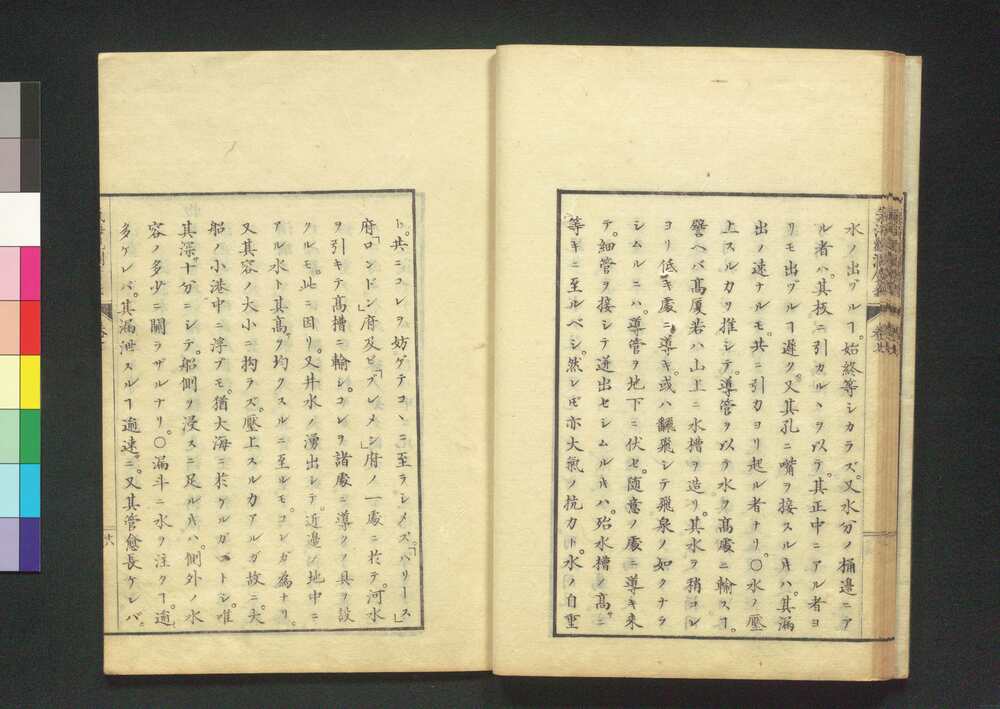 水ノ出ヅルヿ。始終等シカラズ。又水分ノ桶邊ニア
ル者ハ。其板ニ引カルヽヲ以テ。其正中ニアル者ヨ
リモ出ヅルヿ遲ク。又其孔ニ嘴ヲ接スル𪜈ハ。其漏
出ノ速ナルモ。共ニ引力ヨリ起ル者ナリ。〇水ノ壓
上スルカヲ推シテ。導管ヲ以テ水ヲ髙處ニ輸スヿ。
譬ヘバ髙厦若ハ山上ニ水槽ヲ造リ。其水ヲ稍コレ
ヨリ低キ處ニ導キ。或ハ飜飛シテ飛泉ノ如クナラ
シムルニハ。導管ヲ地下ニ伏セ。随意ノ處ニ導キ来
テ。細管ヲ接シテ迸出セシムル𪜈ハ。殆水槽ノ髙サニ
等キニ至ルベシ。然レ𪜈亦大氣ノ抗力ト。水ノ自重
ト。共ニコレヲ妨ゲテコヽニ至ラシメズ。「パリース」
府「ロンドン」府及ビ「ブレメン」府ノ一處ニ於テ。河水
ヲ引キテ髙槽ニ輸シ。コレヲ諸處ニ導クノ具ヲ設
クルモ。此ニ因リ。又井水ノ湧出シテ。近邊ノ地中ニ
アル水ト其髙サヲ均クスルニ至ルモ。コレガ為ナリ。
又其容ノ大小ニ拘ラズ。壓上スルカアルガ故ニ。大
船ノ小港中ニ浮ブモ。猶大海ニ於ケルガゴトシ。唯
其深サ十分ニシテ。船側ヲ浸スニ足ル𪜈ハ。側外ノ水
容ノ多少ニ關ラザルナリ。〇漏斗ニ水ヲ注クヿ。逾
多ケレバ。其漏泄スルヿ逾速ニ。又其管愈長ケレバ。